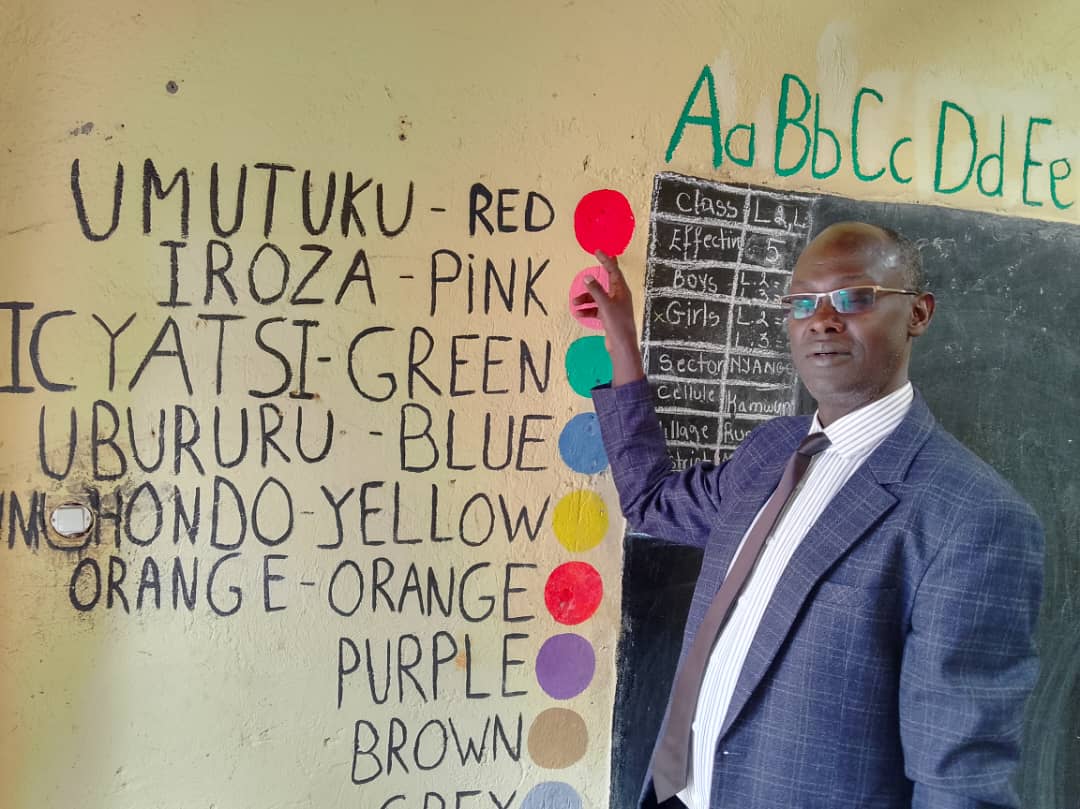 UMUTUKU - RED
IROZA - PINK
ICYATSI - GREEN
UBURURU - BLUE
HONDO - YELLOW
ORANGE - ORANGE
PURPLE
BROWN
GREY
Aa Bb Cc Dd Ee
Class L2, L
Effectin 5
Boys L.2
L.3
x Girls L.2 =
L.3 =
Sector NYANGE
Cellule Kamwum